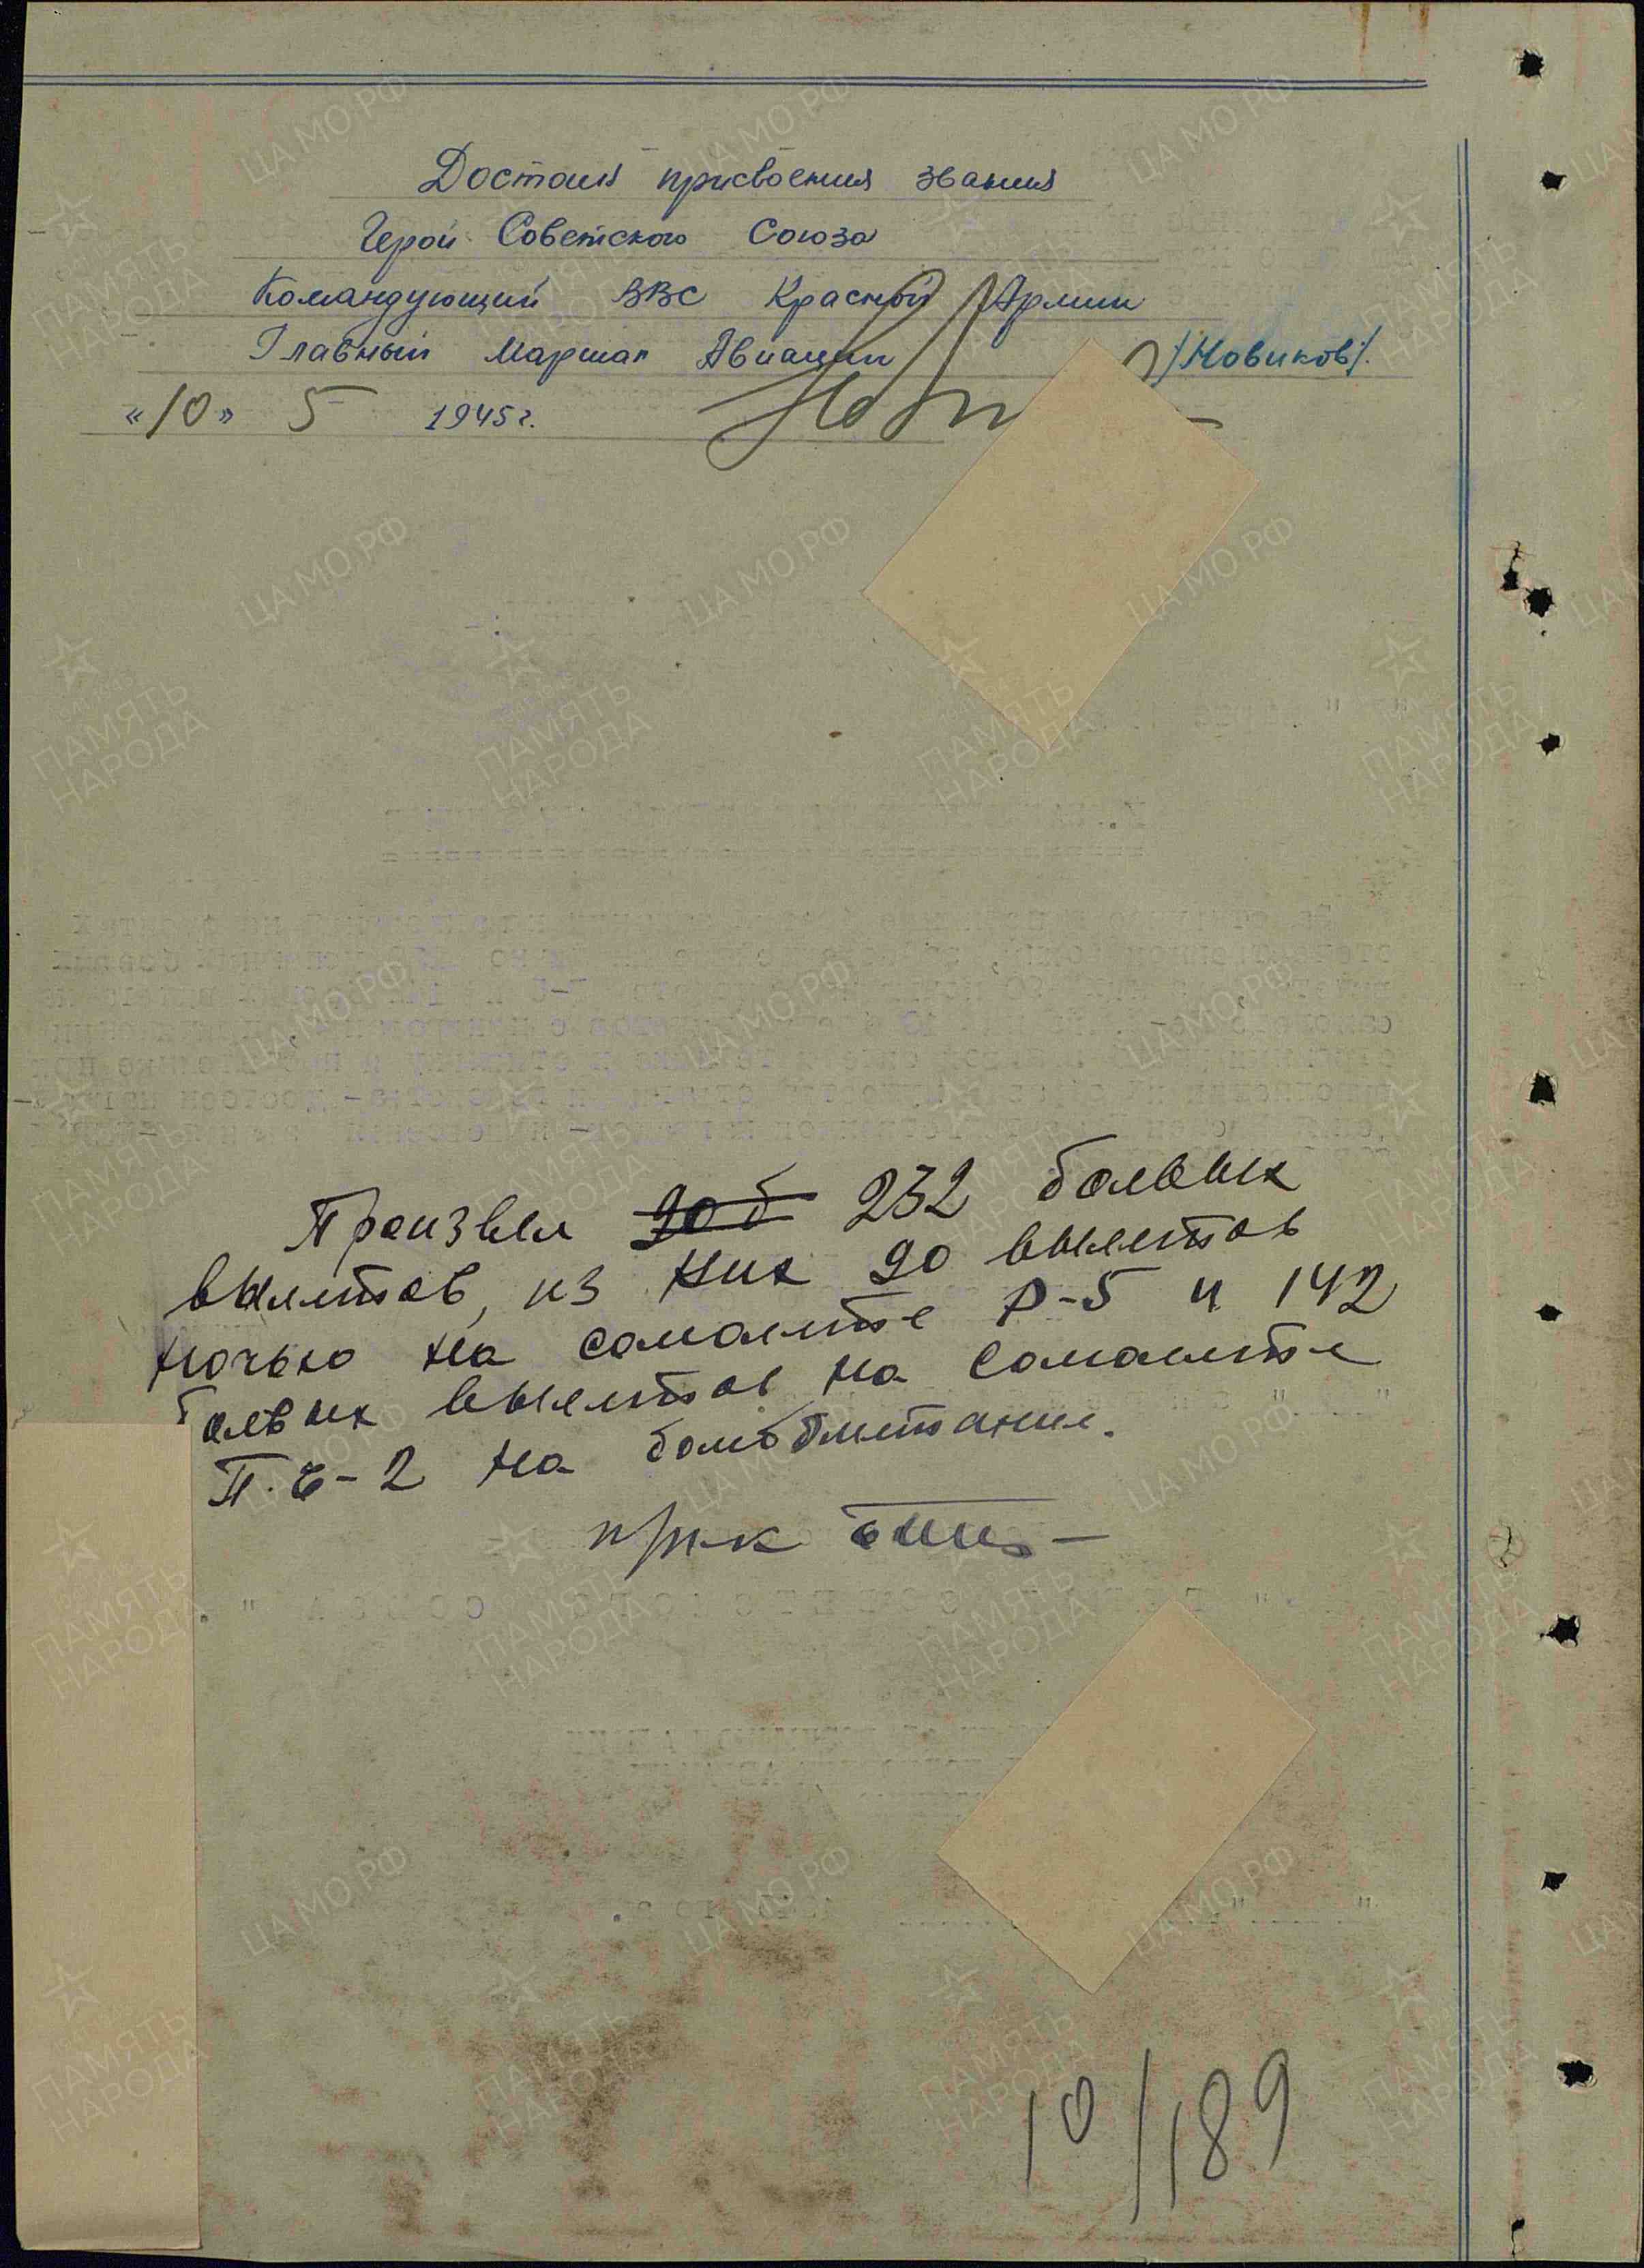 Достоин присвоения звания
Герой Советского Союза
Командующий ВВС Красной Армии
Главный Маршал Авиации /Новиков/.
«10» 5 1945г.
Произвел 232 боевых
вылетов, из них 90 вылетов
ночью на самолете Р-5 и 142
боевых вылетов на самолете
П.Е-2 на бомбометание.
10/189
ЦА МО РФ
ПАМЯТЬ
НАРОДА